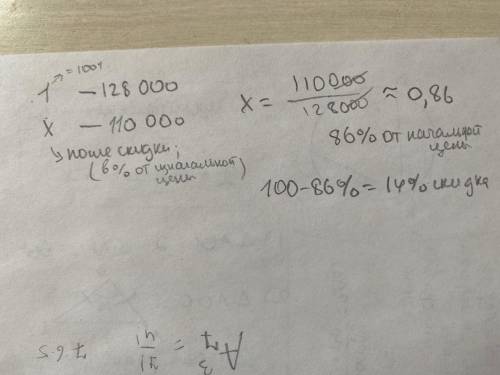 1 = 100% — 128 000
x — 110 000
после скидки;
(в % от изначальной
цены)
x = 110000 / 128000 ≈ 0,86
86% от начальной
цены
100-86% = 14% скидка
A₇³ = 7! / 4! 7 6 5